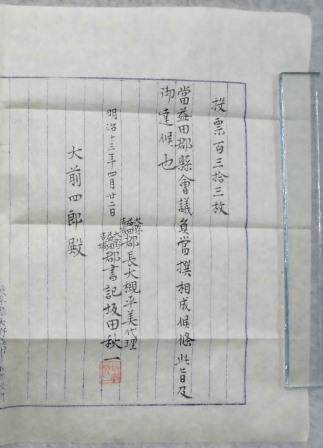 投票百三拾三枚
當益田郡縣會議員當撰相成候條此旨及
御達候也
明治十三年四月廿二日
益田郡長大槻平美代理
益田郡書記坂田秋一
大前四郎殿